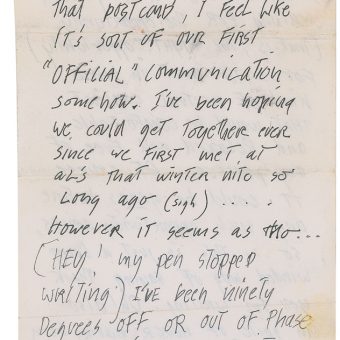 That postcard, I Feel Like
IT's SORT OF OUR FIRST
"OFFICIAL" communication
somehow. I've been hoping
we could get Together ever
since we First met at
al's That winter nite so
Long ago (sigh) . . . . .
However it seems as tho...
(HEY! my pen stopped
writing.) I've been ninety
Degrees OFF OR OUT OF Phase